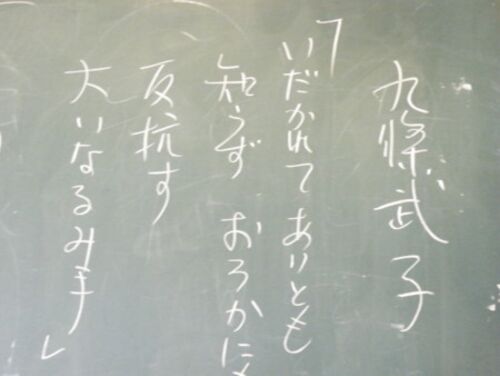 九條武子
「いだかれてありとも
知らず おろかに
反抗す
大いなるみ手」